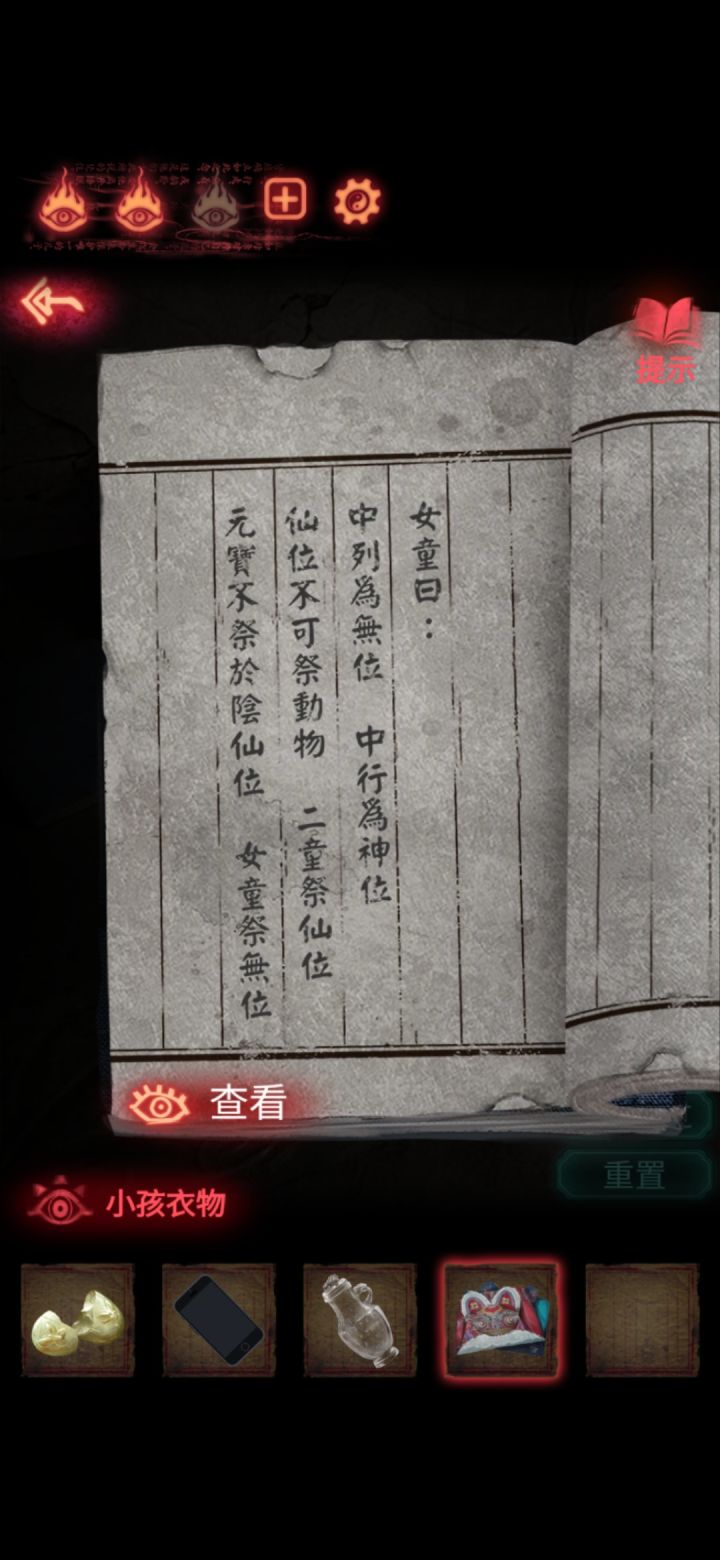 提示
女童曰：
中列為無位 中行為神位
仙位不可祭動物 二童祭仙位
元寶不祭於陰仙位 女童祭無位
查看
重置
小孩衣物